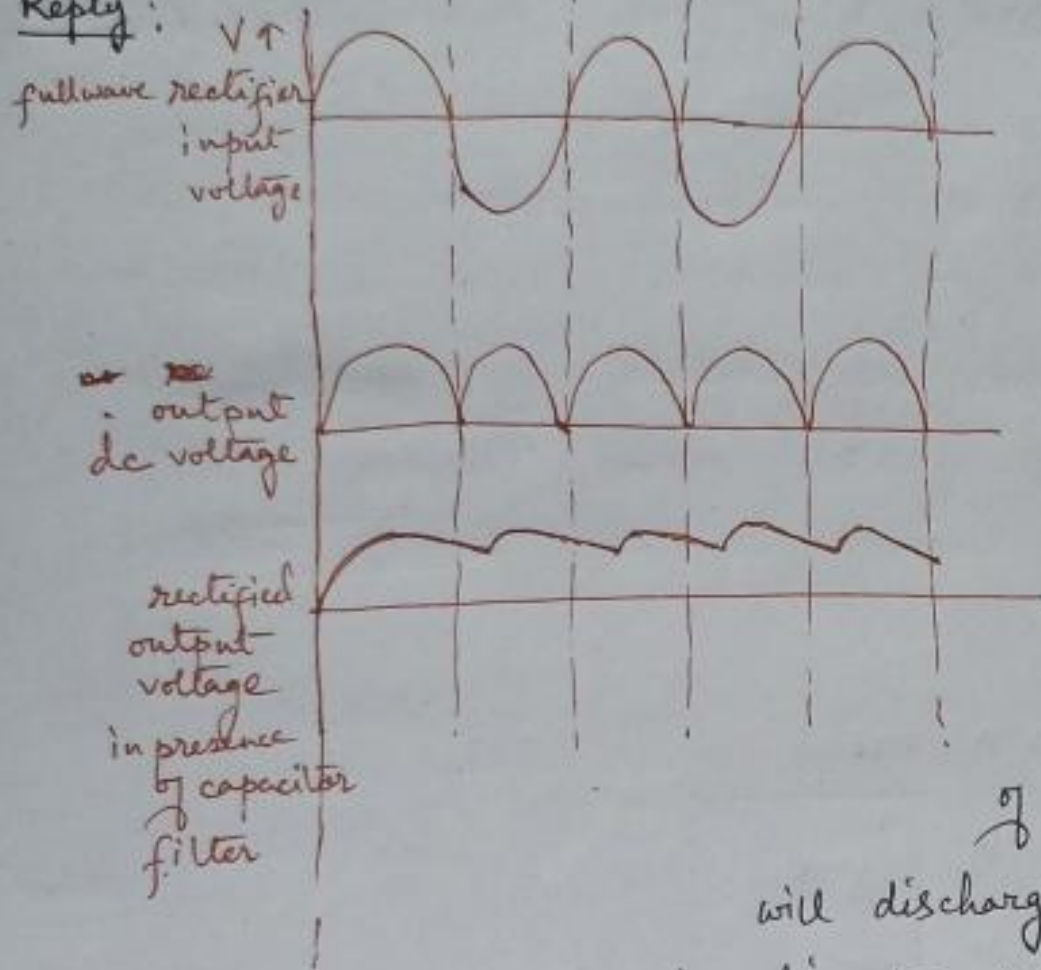 Reply :
V ↑
fullwave rectifier
input
voltage
output
dc voltage
rectified
output
voltage
in presence
of capacitor
filter
of
will discharg